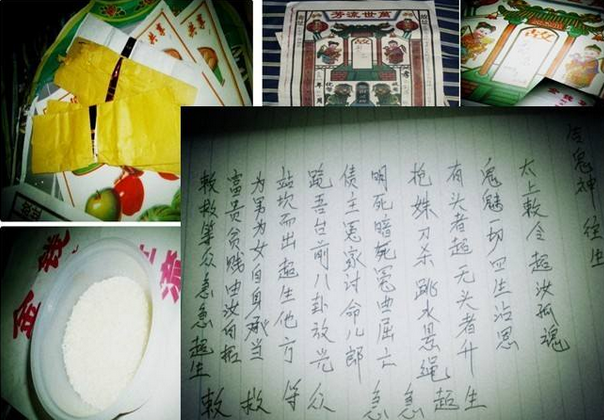 萬世流芳
鬼神 往生
太上敕令超汝孤魂
鬼魅一切四生沾恩
有头者超无头者升
枪姝刀杀跳水悬绳
明死暗死冤曲屈亡
债主冤家讨命儿郎
跪吾台前八卦放光
站坎而出超生他方
为男为女自身承当
富贵贫贱由汝自招
敕救等众急急超生
敕救等众急急超生